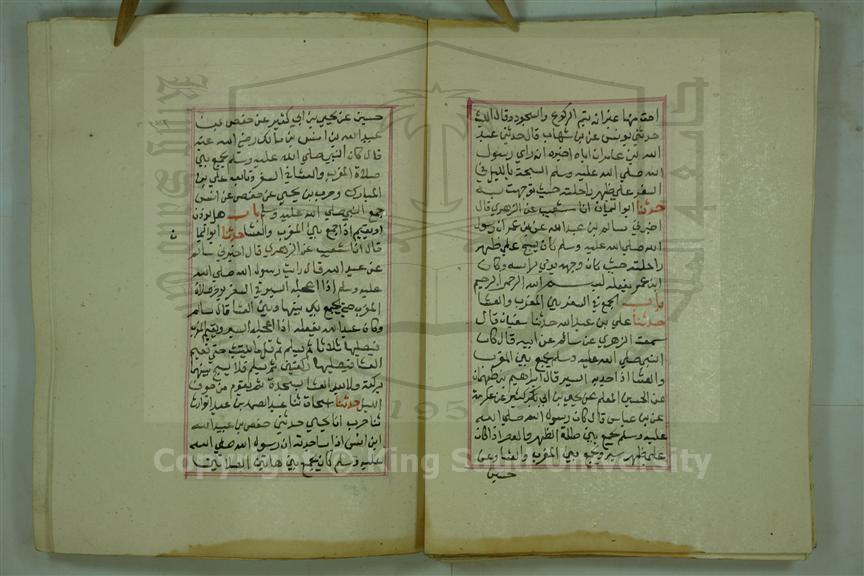 احد منها غير انه يتم الركوع والسجود وقال الليث
حدثني يونس عن بن شهاب قال حدثني عبد
الله بن عامر ان اباه اخبره انه راى رسول
الله صلى الله عليه وسلم السبحة بالليل في
السفر على ظهر راحلته حيث توجهت به
حدثنا ابو اليمان انا شعيب عن الزهري قال
اخبرني سالم بن عبد الله عن بن عمر ان رسول
الله صلى الله عليه وسلم كان يسبح على ظهر
راحلته حيث كان وجهه يومي براسه وكان
ابن عمر يفعله بسم الله الرحمن الرحيم
باب الجمع في السفر بين المغرب والعشا
حدثنا علي بن عبد الله حدثنا سفيان قال
سمعت الزهري عن سالم عن ابيه قال كان
النبي صلى الله عليه وسلم يجمع بين المغرب
والعشا اذا جد به السير قال ابراهيم بن طهمان
عن الحسين المعلم عن يحيى بن ابي كثير عن عكرمة
عن بن عباس قال كان رسول الله صلى الله
عليه وسلم يجمع بين صلاة الظهر والعصر اذا كان
على ظهر سير ويجمع بين المغرب والعشا وعن
حسين
حسين عن يحيى بن ابي كثير عن حفص بن
عبيد الله بن انس بن مالك رضي الله عنه
قال كان النبي صلى الله عليه وسلم يجمع بين
صلاة المغرب والعشا في السفر وتابعه علي بن
المبارك وحرب بن يحيى عن حفص عن انس
جمع النبي صلى الله عليه وسلم باب هل يوذن
او يقيم اذا جمع بين المغرب والعشا حدثنا ابو اليما
ن
قال انا شعيب عن الزهري قال اخبرني سالم
عن عبد الله قال رايت رسول الله صلى الله
عليه وسلم اذا اعجله السير في السفر يوخر صلاة
المغرب حتى يجمع بين بينها وبين العشا قال سالم
وكان عبد الله يفعله اذا اعجله السير ويقيم المغرب
فيصليها ثلاثا ثم يسلم ثم قل ما يلبث حتى يقيم
العشا فيصليها ركعتين ثم يسلم فلا يسبح بينها
بركعة ولا بعد العشا بسجدة حتى يقوم من جوف
الليل حدثنا اسحاق ثنا عبد الصمد بن عبد الوارث
ثنا حرب انا يحيى حدثني حفص بن عبيد الله
ابن انس ان انسا حدثه ان رسول الله صلى الله
عليه وسلم كان يجمع بين هاتين الصلاتين
Copyright © King Saud University
195